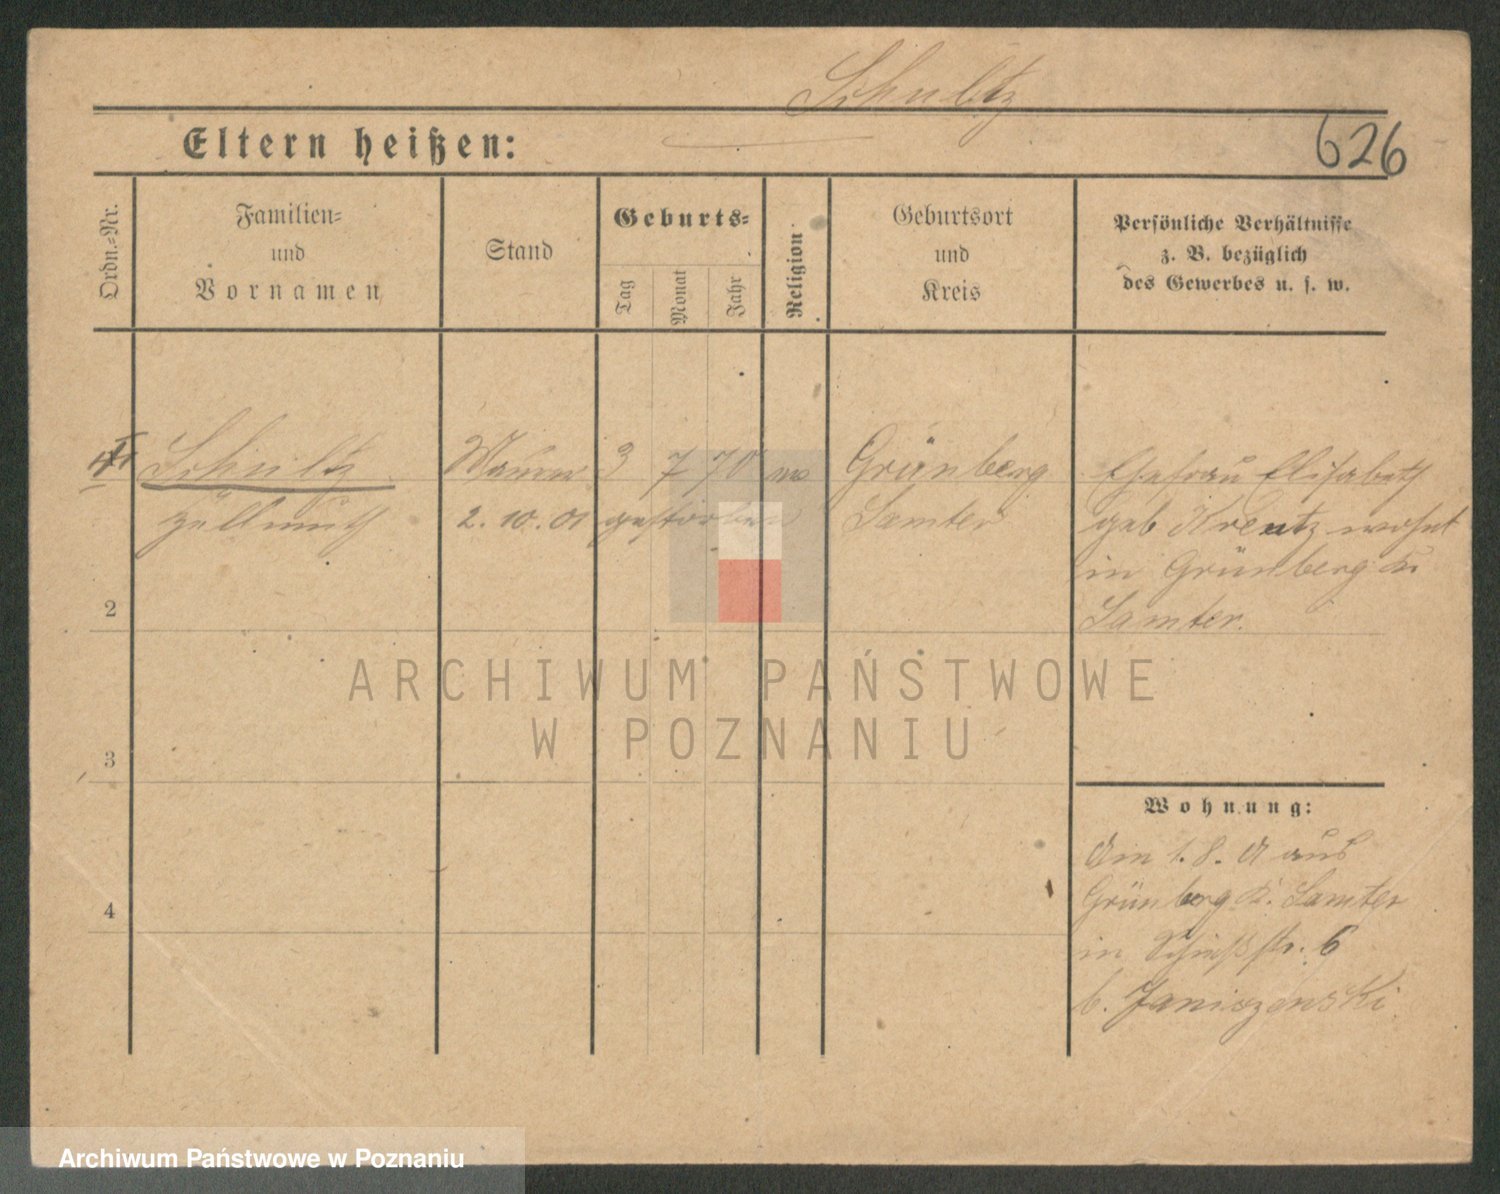 Schultz
Eltern heißen:
626
Ordn.-Nr.
Familien-
und
Vornamen
Stand
Geburts-
Tag
Monat
Jahr
Religion
Geburtsort
und
Kreis
Persönliche Verhältnisse
z. B. bezüglich
des Gewerbes u. s. w.
Schultz Maurer 3 7 70 Grünberg
Hellmuth 2. 10. 01 gestorben Samter
Ehefrau Elisabeth
geb Kreutz wohnt
in Grünberg Kr
Samter.
2
3
4
Wohnung:
Am 1. 8. 01 aus
Grünberg K. Samter
in Schießstr. 6
b. Janiszenski
ARCHIWUM PAŃSTWOWE
W POZNANIU
Archiwum Państwowe w Poznaniu